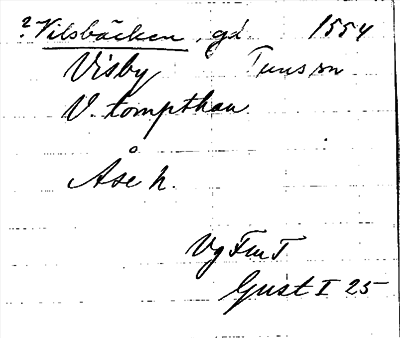 ? Vilsbäcken, gd 1554
Visby Tuns sn
V. tompthan
Åse h.
Vg FmT
Gust I 25